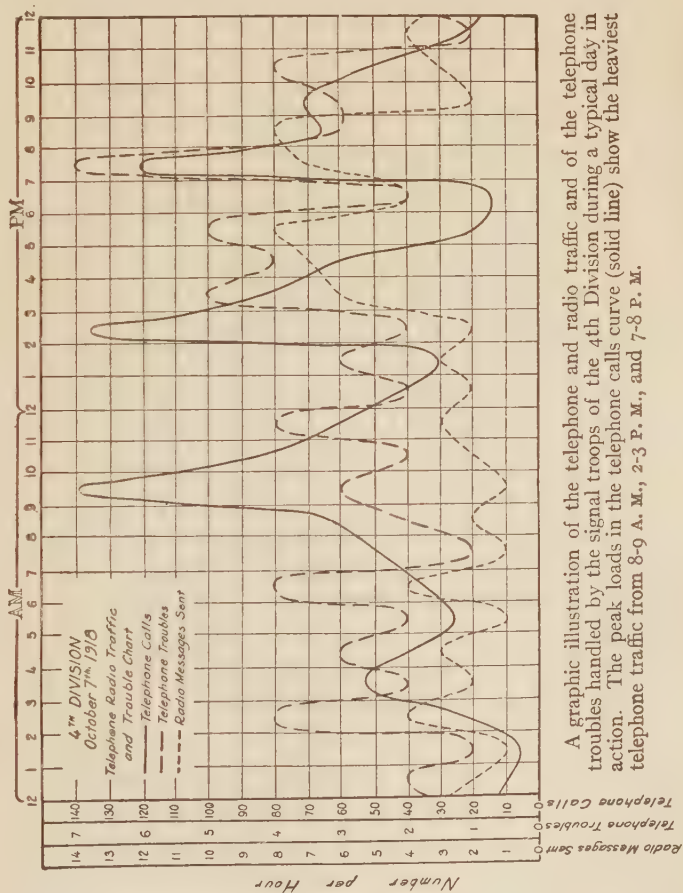 AM PM
12 1 2 3 4 5 6 7 8 9 10 11 12 1 2 3 4 5 6 7 8 9 10 11 12
4TH DIVISION
October 7th, 1918
Telephone Radio Traffic
and Trouble Chart
Telephone Calls
Telephone Troubles
Radio Messages Sent
14 7 140
13 130
12 6 120
11 110
10 5 100
9 90
8 4 80
7 70
6 3 60
5 50
4 2 40
3 30
2 1 20
1 10
0 0 0
Number per Hour
Radio Messages Sent
Telephone Troubles
Telephone Calls
A graphic illustration of the telephone and radio traffic and of the telephone
troubles handled by the signal troops of the 4th Division during a typical day in
action. The peak loads in the telephone calls curve (solid line) show the heaviest
telephone traffic from 8-9 A. M., 2-3 P. M., and 7-8 P. M.